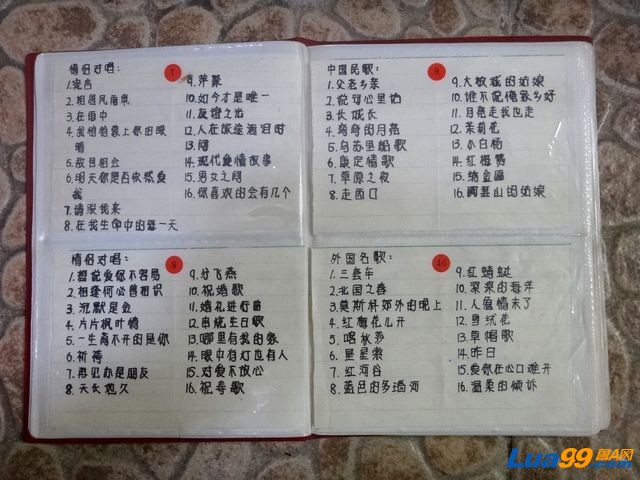 情侣对唱:
7
1.宛言
2.相偎风雨象
3.在雨中
4.我悄悄蒙上你的眼
睛
5.敖包相会
6.明天你是否依然爱
我
7.请跟我来
8.在我生命中的每一天
9.萍聚
10.如今才是唯一
11.反燈之光
12.人在旅途洒泪时
13.
14.现代爱情故事
15.男女之间
16.你喜欢的会有几个
情侣对唱:
8
1.想说爱你不容易
2.相逢何必曾相识
3.沉默是金
4.片片枫叶情
5.一生离不开的是你
6.祈祷
7.再见亦是朋友
8.天长地久
9.分飞燕
10.祝婚歌
11.婚礼进行曲
12.串烧生日歌
13.哪里有我的家
14.眼中有灯也有人
15.对爱不放心
16.祝寿歌
中国民歌:
9
1.父老乡亲
2.说句心里话
3.长城长
4.弯弯的月亮
5.乌苏里船歌
6.康定情歌
7.草原之夜
8.走西口
9.大坂城的姑娘
10.谁不说俺家乡好
11.月亮走我也走
12.茉莉花
13.小白杨
14.红梅赞
15.绣金匾
16.阿里山的姑娘
外国名歌:
10
1.三套车
2.北国之春
3.莫斯科郊外的晚上
4.红梅花儿开
5.喀秋莎
6.星星索
7.红河谷
8.蓝色的多瑙河
9.红蜻蜓
10.深深的海洋
11.人道情未了
12.雪绒花
13.草帽歌
14.昨日
15.爱你在心口难开
16.温柔的倾诉
Lua99